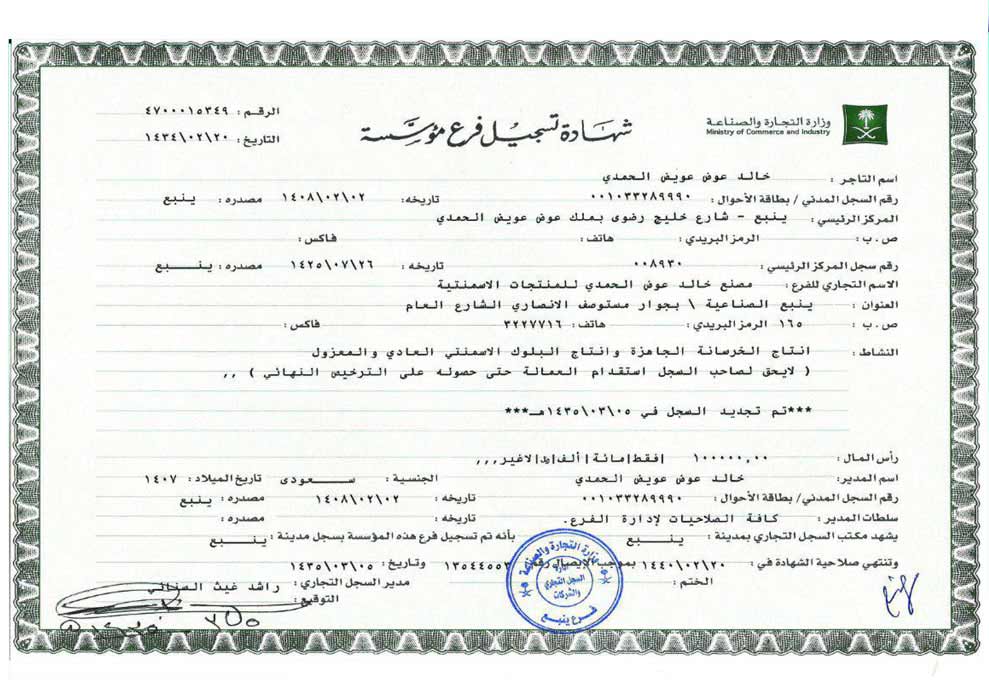 وزارة التجارة والصناعة
Ministry of Commerce and Industry
شهادة تسجيل فرع مؤسسة
الرقم : ٤٧٠٠٠١٥٣٤٩
التاريخ : ١٤٣٤/٠٢/٢٠
اسم التاجر : خالد عوض عويض الحمدي
رقم السجل المدني / بطاقة الأحوال : ٠٠١٠٣٣٢٨٩٩٩٠ تاريخه : ١٤٠٨/٠٢/٠٢ مصدره : ينبع
المركز الرئيسي : ينبع - شارع خليج رضوى بملك عوض عويض الحمدي
ص . ب : الرمز البريدي : هاتف : فاكس :
رقم سجل المركز الرئيسي : ٠٠٨٩٣٠ تاريخه : ١٤٢٥/٠٧/٢٦ مصدره : ينـــبع
الاسم التجاري للفرع : مصنع خالد عوض الحمدي للمنتجات الاسمنتية
العنوان : ينبع الصناعية \ بجوار مستوصف الانصاري الشارع العام
ص . ب : ١٦٥ الرمز البريدي : هاتف : ٣٢٢٧٧١٦ فاكس :
النشاط : انتاج الخرسانة الجاهزة وانتاج البلوك الاسمنتي العادي والمعزول
( لايحق لصاحب السجل استقدام العمالة حتى حصوله على الترخيص النهائي ) ,,
***تم تجديد السجل في ١٤٣٥/٠٣/٠٥هـ***
رأس المال : ١٠٠٠٠٠,٠٠ |فقط|مائة|ألف| |لاغير,,,
اسم المدير : خالد عوض عويض الحمدي الجنسية : ســعودى تاريخ الميلاد : ١٤٠٧
رقم السجل المدني / بطاقة الأحوال : ٠٠١٠٣٣٢٨٩٩٩٠ تاريخه : ١٤٠٨/٠٢/٠٢ مصدره : ينبع
سلطات المدير : كافة الصلاحيات لإدارة الفرع. تاريخه : مصدره :
يشهد مكتب السجل التجاري بمدينة : ينـــبع بأنه تم تسجيل فرع هذه المؤسسة بسجل مدينة : ينـــبع
وتنتهي صلاحية الشهادة في : ١٤٤٠/٠٢/٢٠ بموجب الإيصال رقم : ١٣٥٤٤٥٥٣ وتاريخ : ١٤٣٥/٠٣/٠٥
الختم : مدير السجل التجاري : راشد غيث
التوقيع :
وزارة التجارة والصناعة
السجل التجاري
والشركات
فرع ينبع